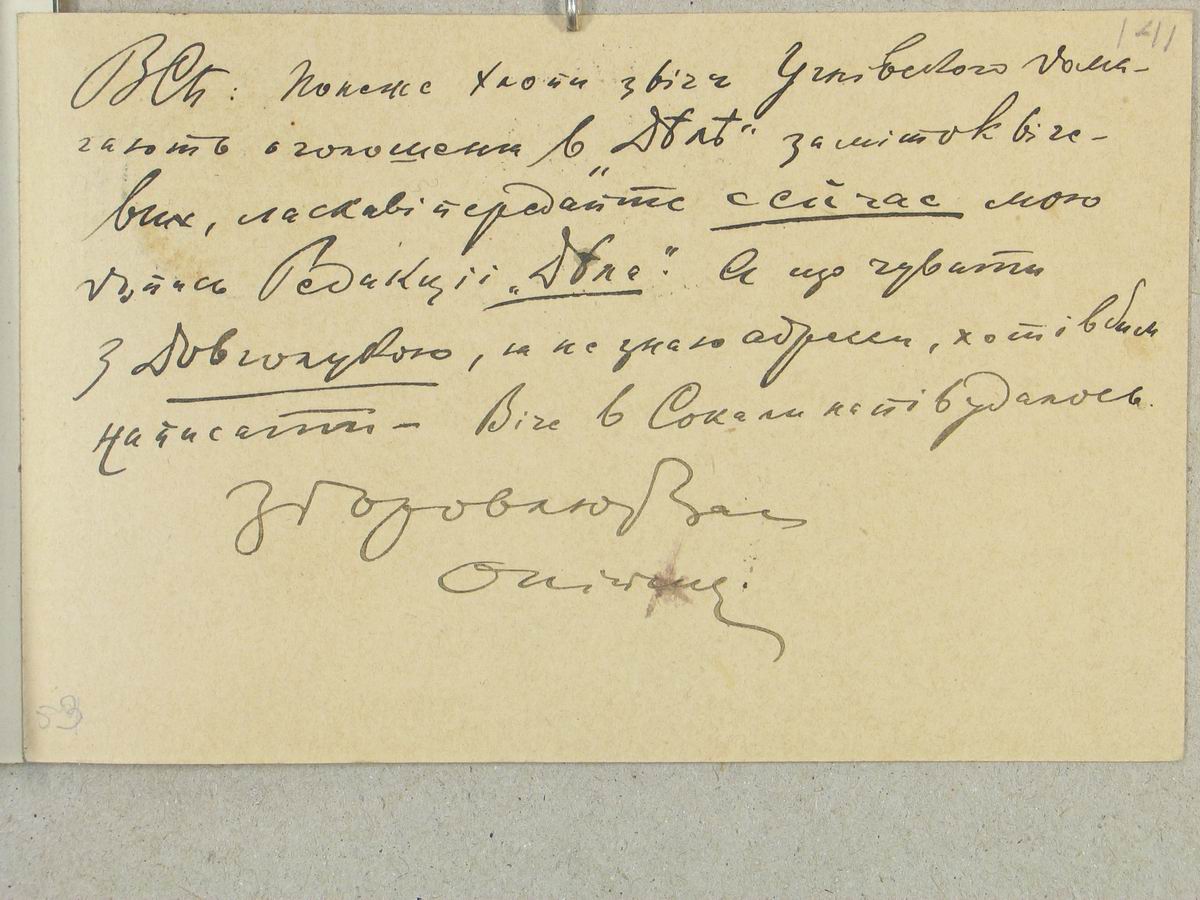 141
ВСп: Понеже хлопи з віча Угнівского дома-
гають оголошеня в „Дѣлѣ" заміток віче-
вих, ласкаві передайте сейчас мою
допись Редакциі „Дѣла". А що чувати
з Довгопукою, я не знаю адреси, хотів бим
написати — Віче в Сокали на пів удалось.
Здоровлю Вас
53